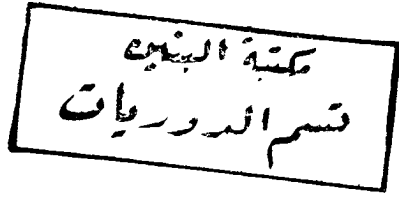 مكتبة البنين
قسم الدوريات